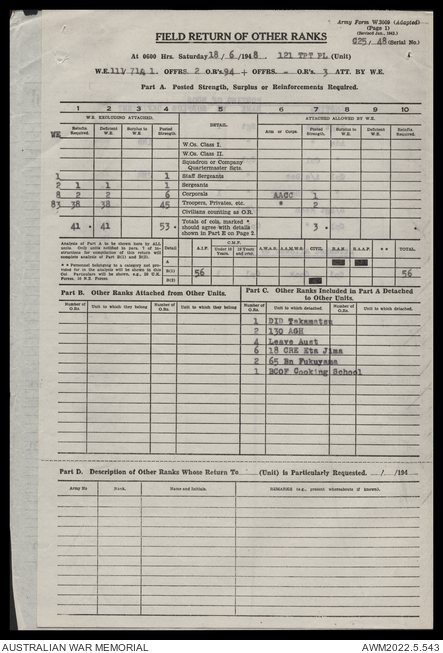 Army Form W.3009 (Adapted)
(Page 1)
(Revised Jan., 1942.)
FIELD RETURN OF OTHER RANKS
C25/48 (Serial No.)
At 0600 Hrs. Saturday 18/6/1948. 121 TPT PL (Unit)
W.E. 111/714 1. OFFRS 2 O.R's. 94 + OFFRS. - O.R's. 3 ATT. BY W.E.
Part A. Posted Strength, Surplus or Reinforcements Required.
1 2 3 4 5 6 7 8 9 10
W.E. EXCLUDING ATTACHED. ATTACHED ALLOWED BY W.E.
WE Reinfts. Required. Deficient W.E. Surplus to W.E. Posted Strength. DETAIL. Arm or Corps. Posted Strength. Surplus to W.E. Deficient W.E. Reinfts. Required.
W.Os. Class I.
W.Os. Class II.
Squadron or Company
Quartermaster Sgts.
1 1 Staff Sergeants
2 1 1 1 Sergeants
8 2 2 6 Corporals AASC 1
83 38 38 45 Troopers, Privates, etc. " 2
Civilians counting as O.R.
41 41 53 Totals of cols. marked * should agree with details shown in Part E on Page 2. 3
Analysis of Part A to be shown here by ALL units. Detail A.I.F. C.M.F. Under 18 Years. 18 Years and over. A.W.A.S. A.A.M.W.S. CIVIL R.A.N. R.A.A.F. * * TOTAL.
A
B(1) 56 56
B(2)
Part B. Other Ranks Attached from Other Units.
Part C. Other Ranks Included in Part A Detached
to Other Units.
Number of O.Rs. Unit to which they belong Number of O.Rs. Unit to which they belong Number of O.Rs. Unit to which detached. Number of O.Rs. Unit to which detached.
1 DID Takamatsu
2 130 AGH
4 Leave Aust
6 18 CRE Eta Jima
2 65 Bn Fukuyama
1 BCOF Cooking School
Part D. Description of Other Ranks Whose Return To (Unit) is Particularly Requested. / /194
Army No Rank. Name and Initials. REMARKS (e.g., present whereabouts if known).
AUSTRALIAN WAR MEMORIAL
AWM2022.5.543